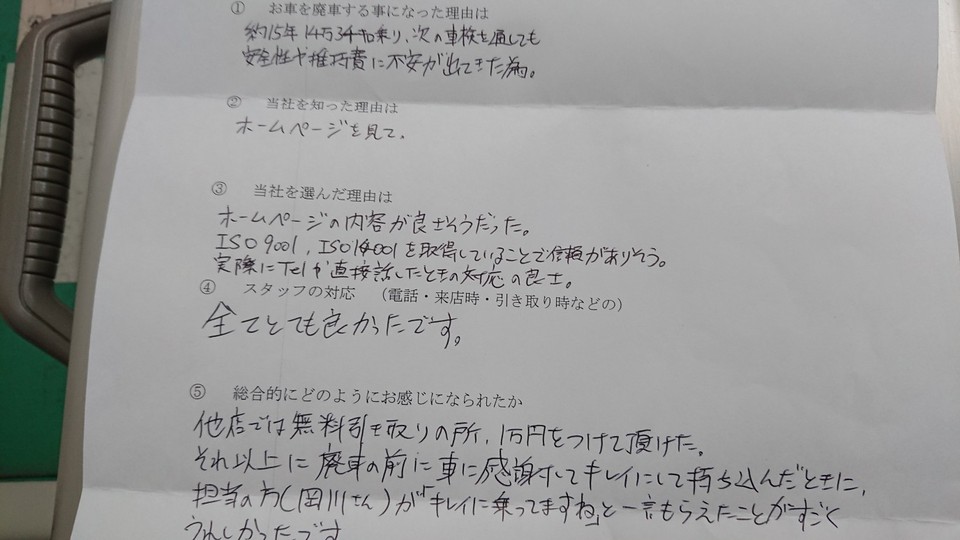 ① お車を廃車する事になった理由は
約15年 14万3千キロ乗り、次の車検を通しても
安全性や維持費に不安が出てきた為。
② 当社を知った理由は
ホームページを見て。
③ 当社を選んだ理由は
ホームページの内容が良さそうだった。
ISO9001, ISO14001を取得していることで信頼がありそう。
実際にTelか直接話したときの対応の良さ。
④ スタッフの対応 (電話・来店時・引き取り時などの)
全てとても良かったです。
⑤ 総合的にどのようにお感じになられたか
他店では無料引き取りの所、1万円をつけて頂けた。
それ以上に廃車の前に車に感謝してキレイにして持ち込んだときに、
担当の方(岡川さん)が「キレイに乗ってますね」と一言もらえたことがすごく
うれしかったです